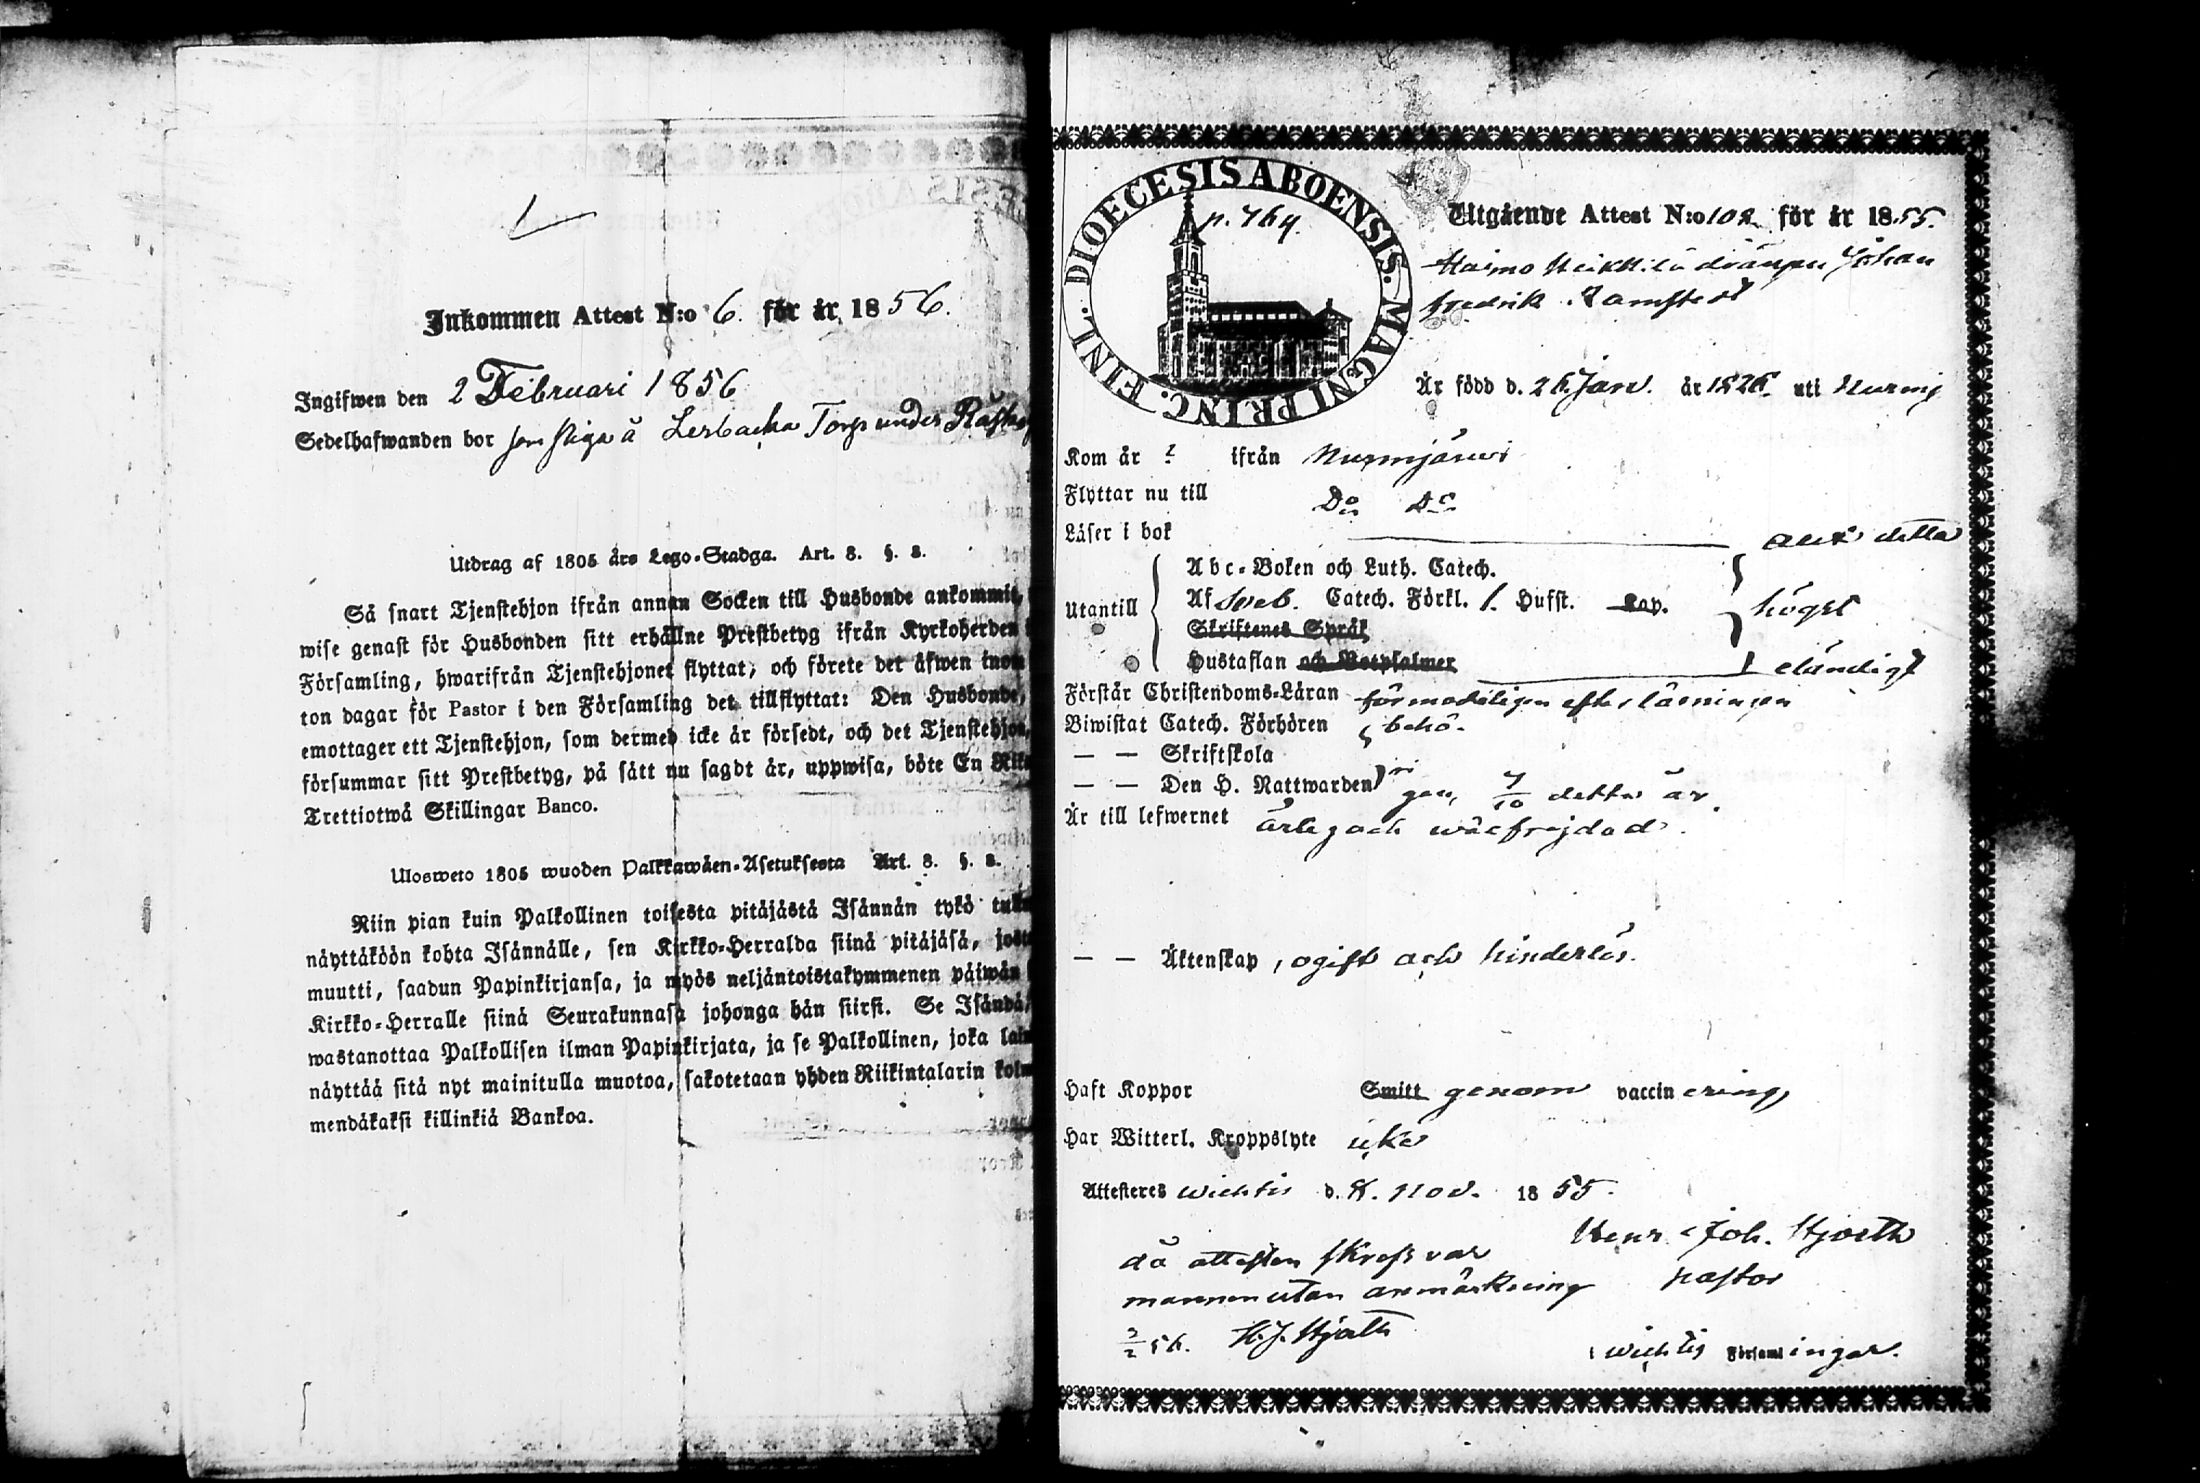 Inkommen Attest N:o 6. för år 1856.
Ingifwen den 2 Februari 1856
Sedelhafwanden bor å Lerbacka Torp under
Utdrag af 1805 års Lego-Stadga. Art. 8. §. 2.
Så snart Tjenstehjon ifrån annan Socken till Husbonde ankommit,
wise genast för Husbonden sitt erhållne Prestbetyg ifrån Kyrkoherden
Församling, hwarifrån Tjenstehjonet flyttat, och förete det äfwen inom
ton dagar för Pastor i den Församling det tillflyttat: Den Husbonde,
emottager ett Tjenstehjon, som dermed icke är försedt, och det Tjenstehjon,
försummar sitt Prestbetyg, på sätt nu sagdt är, uppwisa, böte En
Trettiotwå Skillingar Banco.
Ulosweto 1805 wuoden Palkkawäen-Asetuksesta Art. 8. §. 2.
Niin pian kuin Palkollinen toisesta pitäjästä Isännän tykö
näyttäköön kohta Isännälle, sen Kirkko-Herralda siinä pitäjäsä,
muutti, saadun Papinkirjansa, ja myös neljäntoistakymmenen päiwän
Kirkko-Herralle siinä Seurakunnasa johonga hän siirsi. Se Isändä,
wastanottaa Palkollisen ilman Papinkirjata, ja se Palkollinen, joka
näyttää sitä nyt mainitulla muotoa, sakotetaan yhden Riikintalarin
mendäkaksi killinkiä Bankoa.
DIOECESIS ABOENSIS. MAGNI PRINC. FINL.
p. 764.
Utgående Attest N:o 102 för år 1855.
Haimo Heikkilä drängen Johan
Fredrik
Är född d. 26 Janv. år uti Nurmij
Kom år ? ifrån Nurmijärwi
Flyttar nu till Do Do
Läser i bok allt detta
Utantill
Abc-Boken och Luth. Catech.
Af Sveb. Catech. Förkl. 1. Hufst. Kap. högst
Skriftenes Språk
Hustaflan och Botpsalmer eländigt
Förstår Christendoms-Läran förmodeligen efter läsningen
Biwistat Catech. Förhören behö-
— — Skriftskola
— — Den H. Nattwarden gen, 7/10 detta år.
Är till lefwernet ärlig och wälfrejdad.
— — Äktenskap, ogift och hinderlös.
Haft Koppor Smitt genom vaccinering,
Har Witterl. Kroppslyte icke
Attesteres Wichtis d. 8. Nov. 1855.
Henr. Joh. Hjorth
Pastor
då attesten skrefs var
mannen utan anmärkning
2/2 56. H. J. Hjorth
i Wichtis Församlingar.